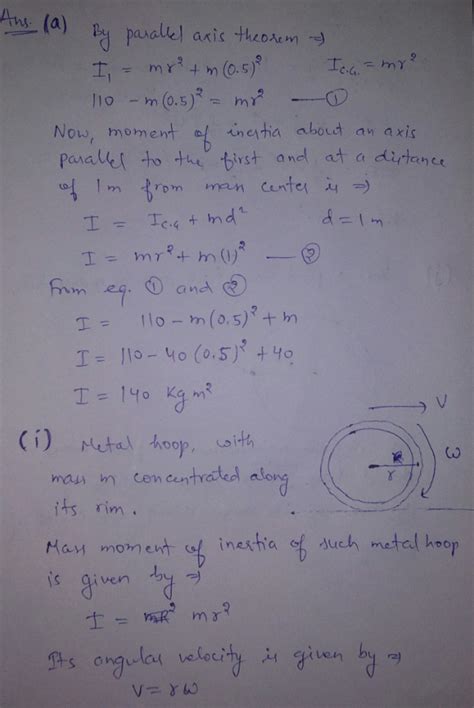 Ans. (a) By parallel axis theorem ⇒
I₁ = mr² + m(0.5)² I_C.G. = mr²
110 - m(0.5)² = mr² —— ①
Now, moment of inertia about an axis
parallel to the first and at a distance
of 1m from mass center is ⇒
I = I_C.G + md² d = 1 m
I = mr² + m(1)² —— ②
From eq. ① and ②
I = 110 - m(0.5)² + m
I = 110 - 40 (0.5)² + 40
I = 140 Kg m²
(i) Metal hoop, with
mass m concentrated along
its rim.
V
ω
r
Mass moment of inertia of such metal hoop
is given by ⇒
I = mr²
Its angular velocity is given by ⇒
V = rω